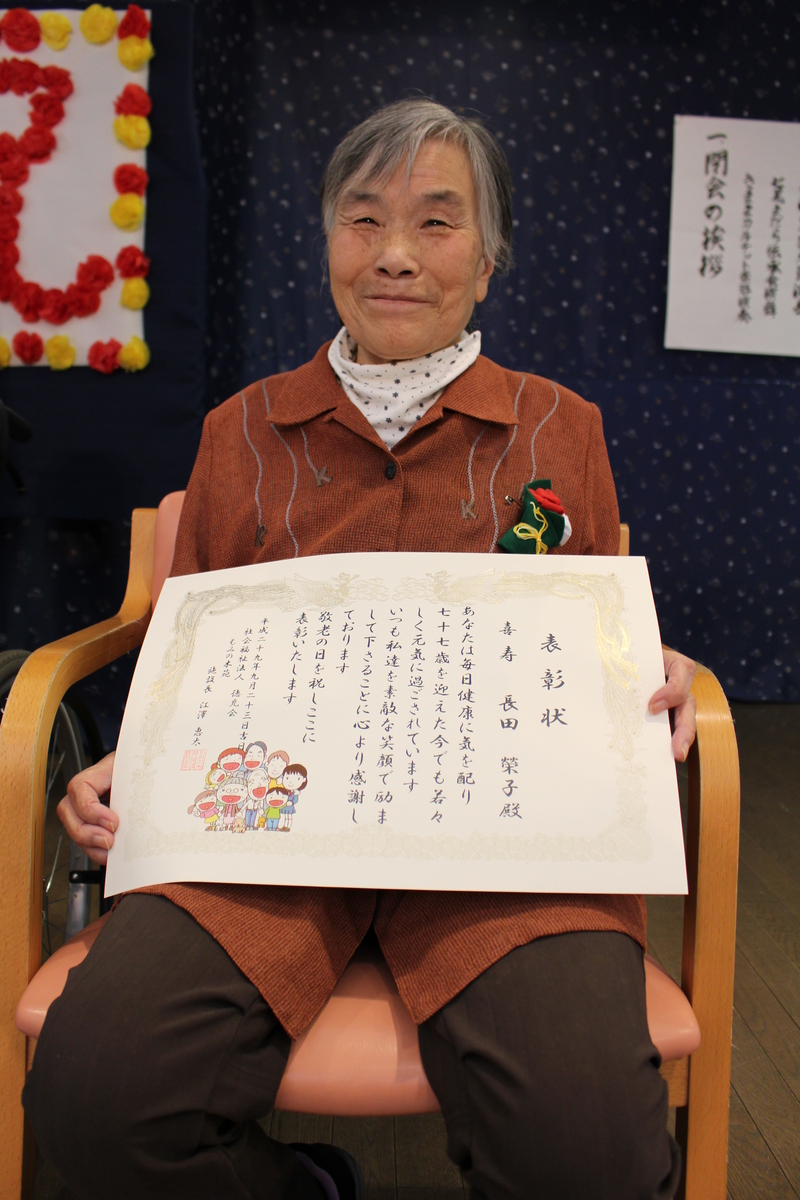 表彰状
喜寿 長田 榮子殿
あなたは毎日健康に気を配り
七十七歳を迎えた今でも若々
しく元気に過ごされています
いつも私達を素敵な笑顔で励ま
して下さることに心より感謝し
ております
敬老の日を祝しここに
表彰いたします
平成二十九年九月二十三日吉日
社会福祉法人 徳充会
もみの木苑
施設長 江澤
一、閉会の挨拶
K
K
K